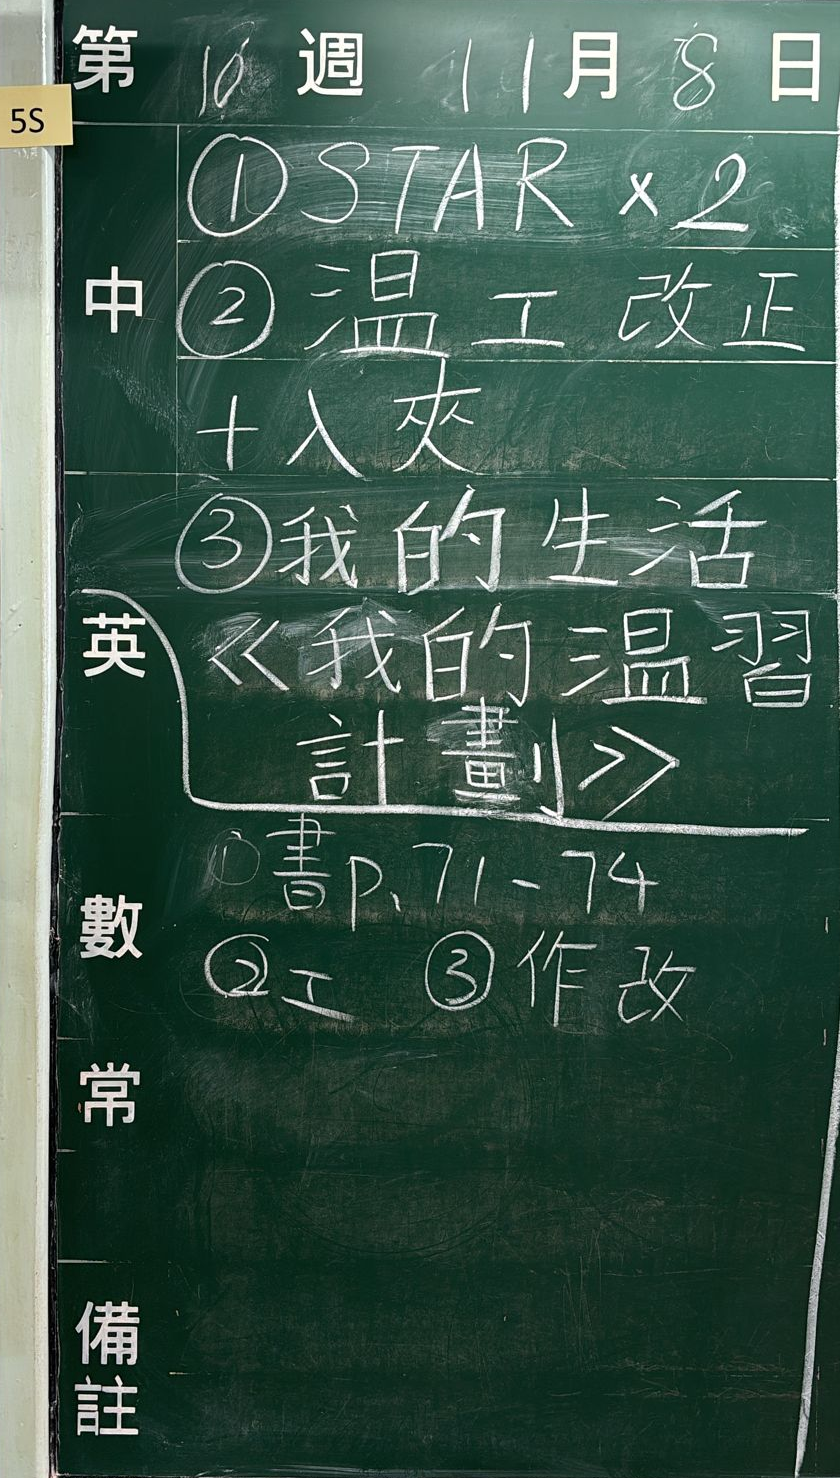 第 10 週 11 月 8 日
5S
中
① STAR × 2
② 温工改正
+入夾
③ 我的生活
英
《我的温習
計劃》
數
① 書p、71-74
② 工 ③ 作改
常
備註